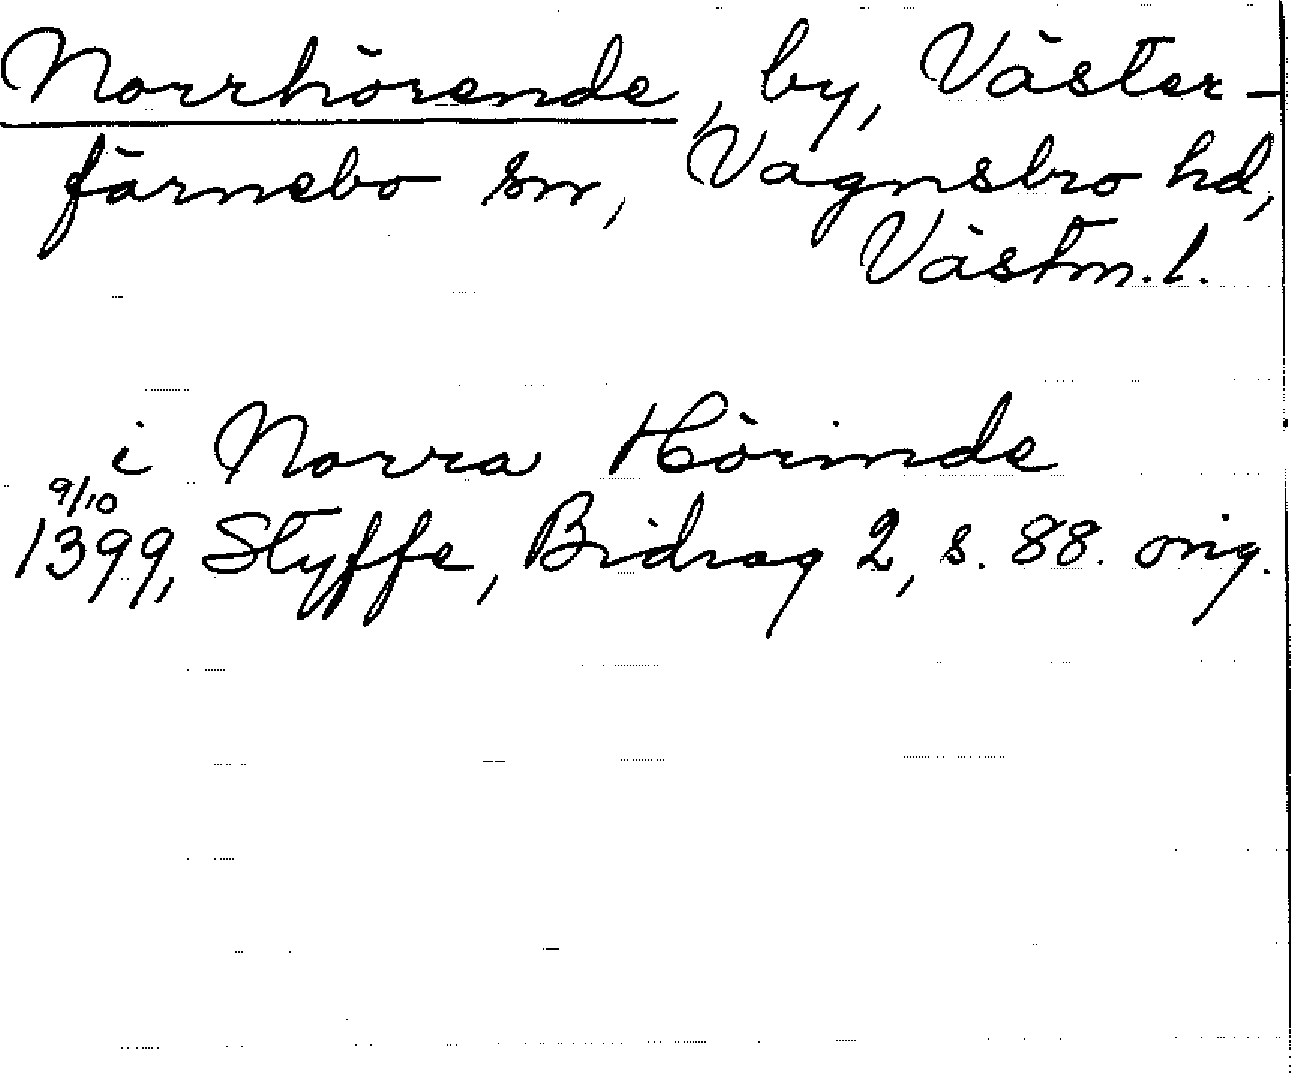 Norrhörende, by, Väster-
färnebo sn, Vagnsbro hd,
Västm. l.
i Norra Hörinde
9/10
1399, Styffe, Bidrag 2, s. 88. orig.